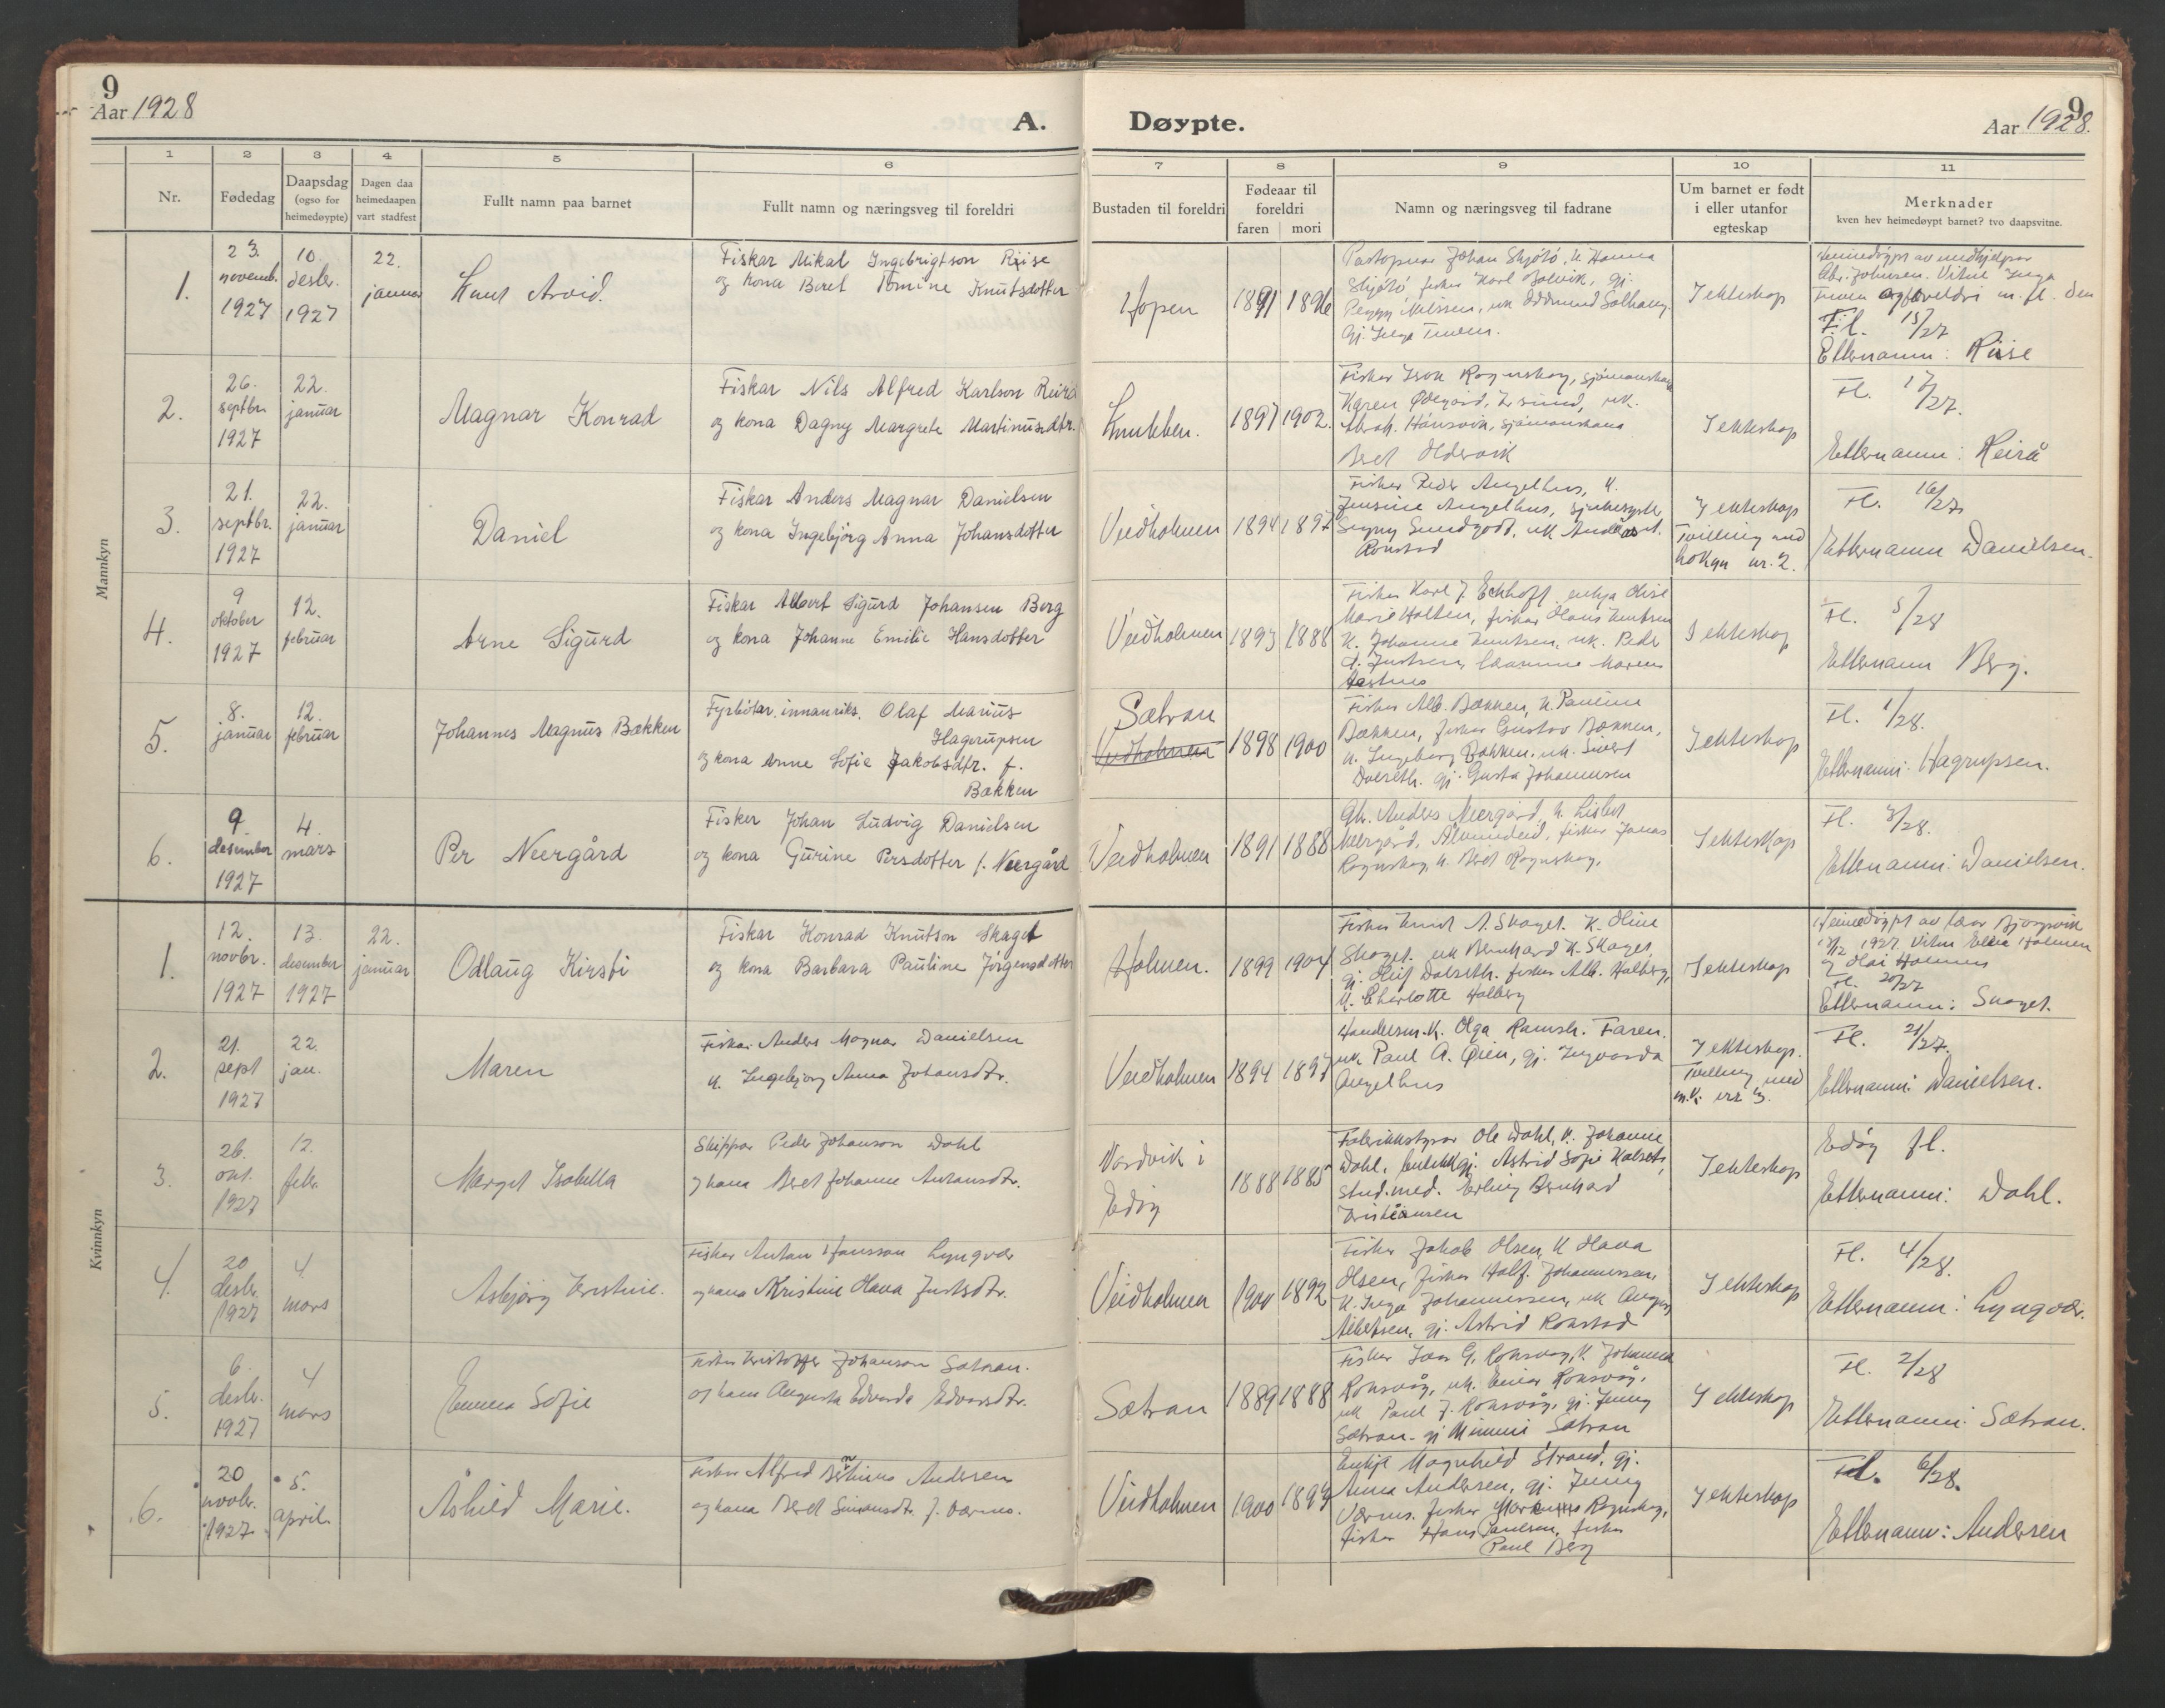 9
Aar 1928
A.
Døypte.
9
Aar 1928.
1
2
3
4
5
6
7
8
9
10
11
Nr.
Fødedag
Daapsdag
(ogso for
heimedøypte)
Dagen daa
heimedaapen
vart stadfest
Fullt namn paa barnet
Fullt namn og næringsveg til foreldri
Bustaden til foreldri
Fødeaar til
foreldri
faren mori
Namn og næringsveg til fadrane
Um barnet er født
i eller utanfor
egteskap
Merknader
kven hev heimedøypt barnet? tvo daapsvitne.
Mannkyn
1.
23.
novemb.
1927
10.
desbr.
1927
22.
januar
Knut Arvid.
Fiskar Mikal Ingebrigtson Riise
og kona Beret Tomine Knutsdotter
Hopen
1891 1896
Johan Skjølø, k. Hanna
Skjølø fisker Karl
Nilssen, uk Oddmund Solhaug.
gj. Inga
I ekteskap
Heimedøypt av
Johnsen. Vitne Inga
og foreldri m. fl. den
Fl. 15/27
Etternamn: Riise
2.
26.
septbr.
1927
22.
januar
Magnar Konrad
Fiskar Nils Alfred Karlson Reirå
og kona Dagny Margrete Martinusdtr.
Knubben.
1897 1902.
Fisker Rognskog, sjømannskone
Karen Ødegård, uk.
sjømannskona
Beret Oldervik
I ekteskap
Fl. 17/27.
Etternamn: Reirå
3.
21.
septbr.
1927
22.
januar
Daniel
Fiskar Anders Magnar Danielsen
og kona Ingebjørg Anna Johansdotter
Veidholmen
1894 1897
Fisker Peder Angelhus, k.
Jensine Angelhus, sjukesyster
Signy Sundgodt, uk
Ronstad
I ekteskap
Tvilling med
kvkyn nr. 2.
Fl. 16/27
Etternamn Danielsen.
4.
9
oktober
1927
12.
februar
Arne Sigurd
Fiskar Albert Sigurd Johansen Berg
og kona Johanne Emilie Hansdotter
Veidholmen
1893 1888
Fisker Karl J. Eckhoff, enkja
Marie Holten, fisker Hans Knutsen
k. Johanne Knutsen, uk. Peder
A. Justsen,
I ekteskap
Fl. 5/28
Etternamn Berg.
5.
8.
januar
12.
februar
Johannes Magnus Bækken
Fyrbøtar, innanriks. Olaf Marius
Hagerupsen
og kona Anne Sofie Jakobsdtr. f.
Bækken
Sætran
Veidholmen
1898 1900
Fisker Alb. Bækken, k. Pauline
Bækken, fisker Gustav Bækken,
k. Ingeborg Bækken, uk. Sivert
Dalseth. gj. Gusta Johannesen
I ekteskap
Fl. 1/28.
Etternamn: Hagrupsen.
6.
9.
desember
1927
4.
mars
Per Neergård
Fisker Johan Ludvig Danielsen
og kona Gurine Persdotter f. Neergård
Veidholmen
1891 1888
Gbr. Anders Neergård, k. Lisbet
Neergård, fisker Jonas
Rognskog, k. Beret Rognskog.
I ekteskap
Fl. 3/28.
Etternamn: Danielsen.
Kvinnkyn
1.
12.
novbr.
1927
13.
desember
1927
22.
januar
Odlaug Kirsti
Fiskar Konrad Knutson Skaget
og kona Barbara Pauline Jørgensdotter
Holmen.
1899 1904
Fisker Knut A. Skaget. k. Oline
Skaget. uk Bernhard K. Skaget,
gj. Dalseth. fisker Alb. Halberg,
k. Charlotte Halberg
I ekteskap
Heimedøypt av
1927. Vitne Holmen
og Holmen
Fl. 20/27
Etternamn: Skaget.
2.
21.
sept
1927
22.
jan.
Maren
Fiskar Anders Magnar Danielsen
k. Ingebjørg Anna Johansdtr.
Veidholmen
1894 1897
Handelsm.k. Olga Ramsli. Faren.
uk Paul A. Øien, gj. Ingvarda
Angelhus
I ekteskap.
Tvilling med
m.k. nr 3.
Fl. 21/27.
Etternamn: Danielsen.
3.
26.
okt.
1927
12.
febr.
Marget Isabella
Skippar Peder Johanson Dahl
og kona Beret Johanne Antonsdtr.
Nordvik i
Edøy
1888 1885
Fabrikkstyrar Ole Dahl, k. Johanne
Dahl, gj. Astrid Sofie
stud. med. Erling Bernhard
Kristiansen
I ekteskap
Edøy fl.
Etternamn: Dahl.
4.
20
desbr.
1927
4
mars
Asbjørg Kristine.
Fisker Anton Hansson Lyngvær
og kona Kristine Hana Justsdtr.
Veidholmen
1900 1892
Fisker Jakob Olsen, k Hana
Olsen, fisker Half. Johannessen,
k. Inga Johannessen, uk August
Albertsen, gj. Astrid Ronstad
I ekteskap
Fl. 4/28.
Etternamn: Lyngvær.
5.
6.
desbr.
1927
4
mars
Emma Sofie
Fisker Kristoffer Johanson Sætran.
og kona Augusta Edvarda Edvardsdtr.
Sætran
1889 1888
Fisker G. Ronsvåg, k. Johanna
Ronsvåg, uk. Einar Ronsvåg,
uk Paul J. Ronsvåg, gj. Jenny
Sætran. gj Minni Sætran
I ekteskap
Fl. 2/28
Etternamn: Sætran.
6.
20
novbr.
1927.
5.
april.
Åshild Marie.
Fisker Alfred Andersen
og kona Beret Simonsdtr. f. Værnes.
Veidholmen
1900 1899
Enkje Magnhild Strand, gj.
Anna Andersen, gj. Jenny
Værnes. fisker Markus Rognskog,
fisker Hans Paulsen, fisker
Paul Berg
I ekteskap
Fl. 6/28.
Etternamn: Andersen